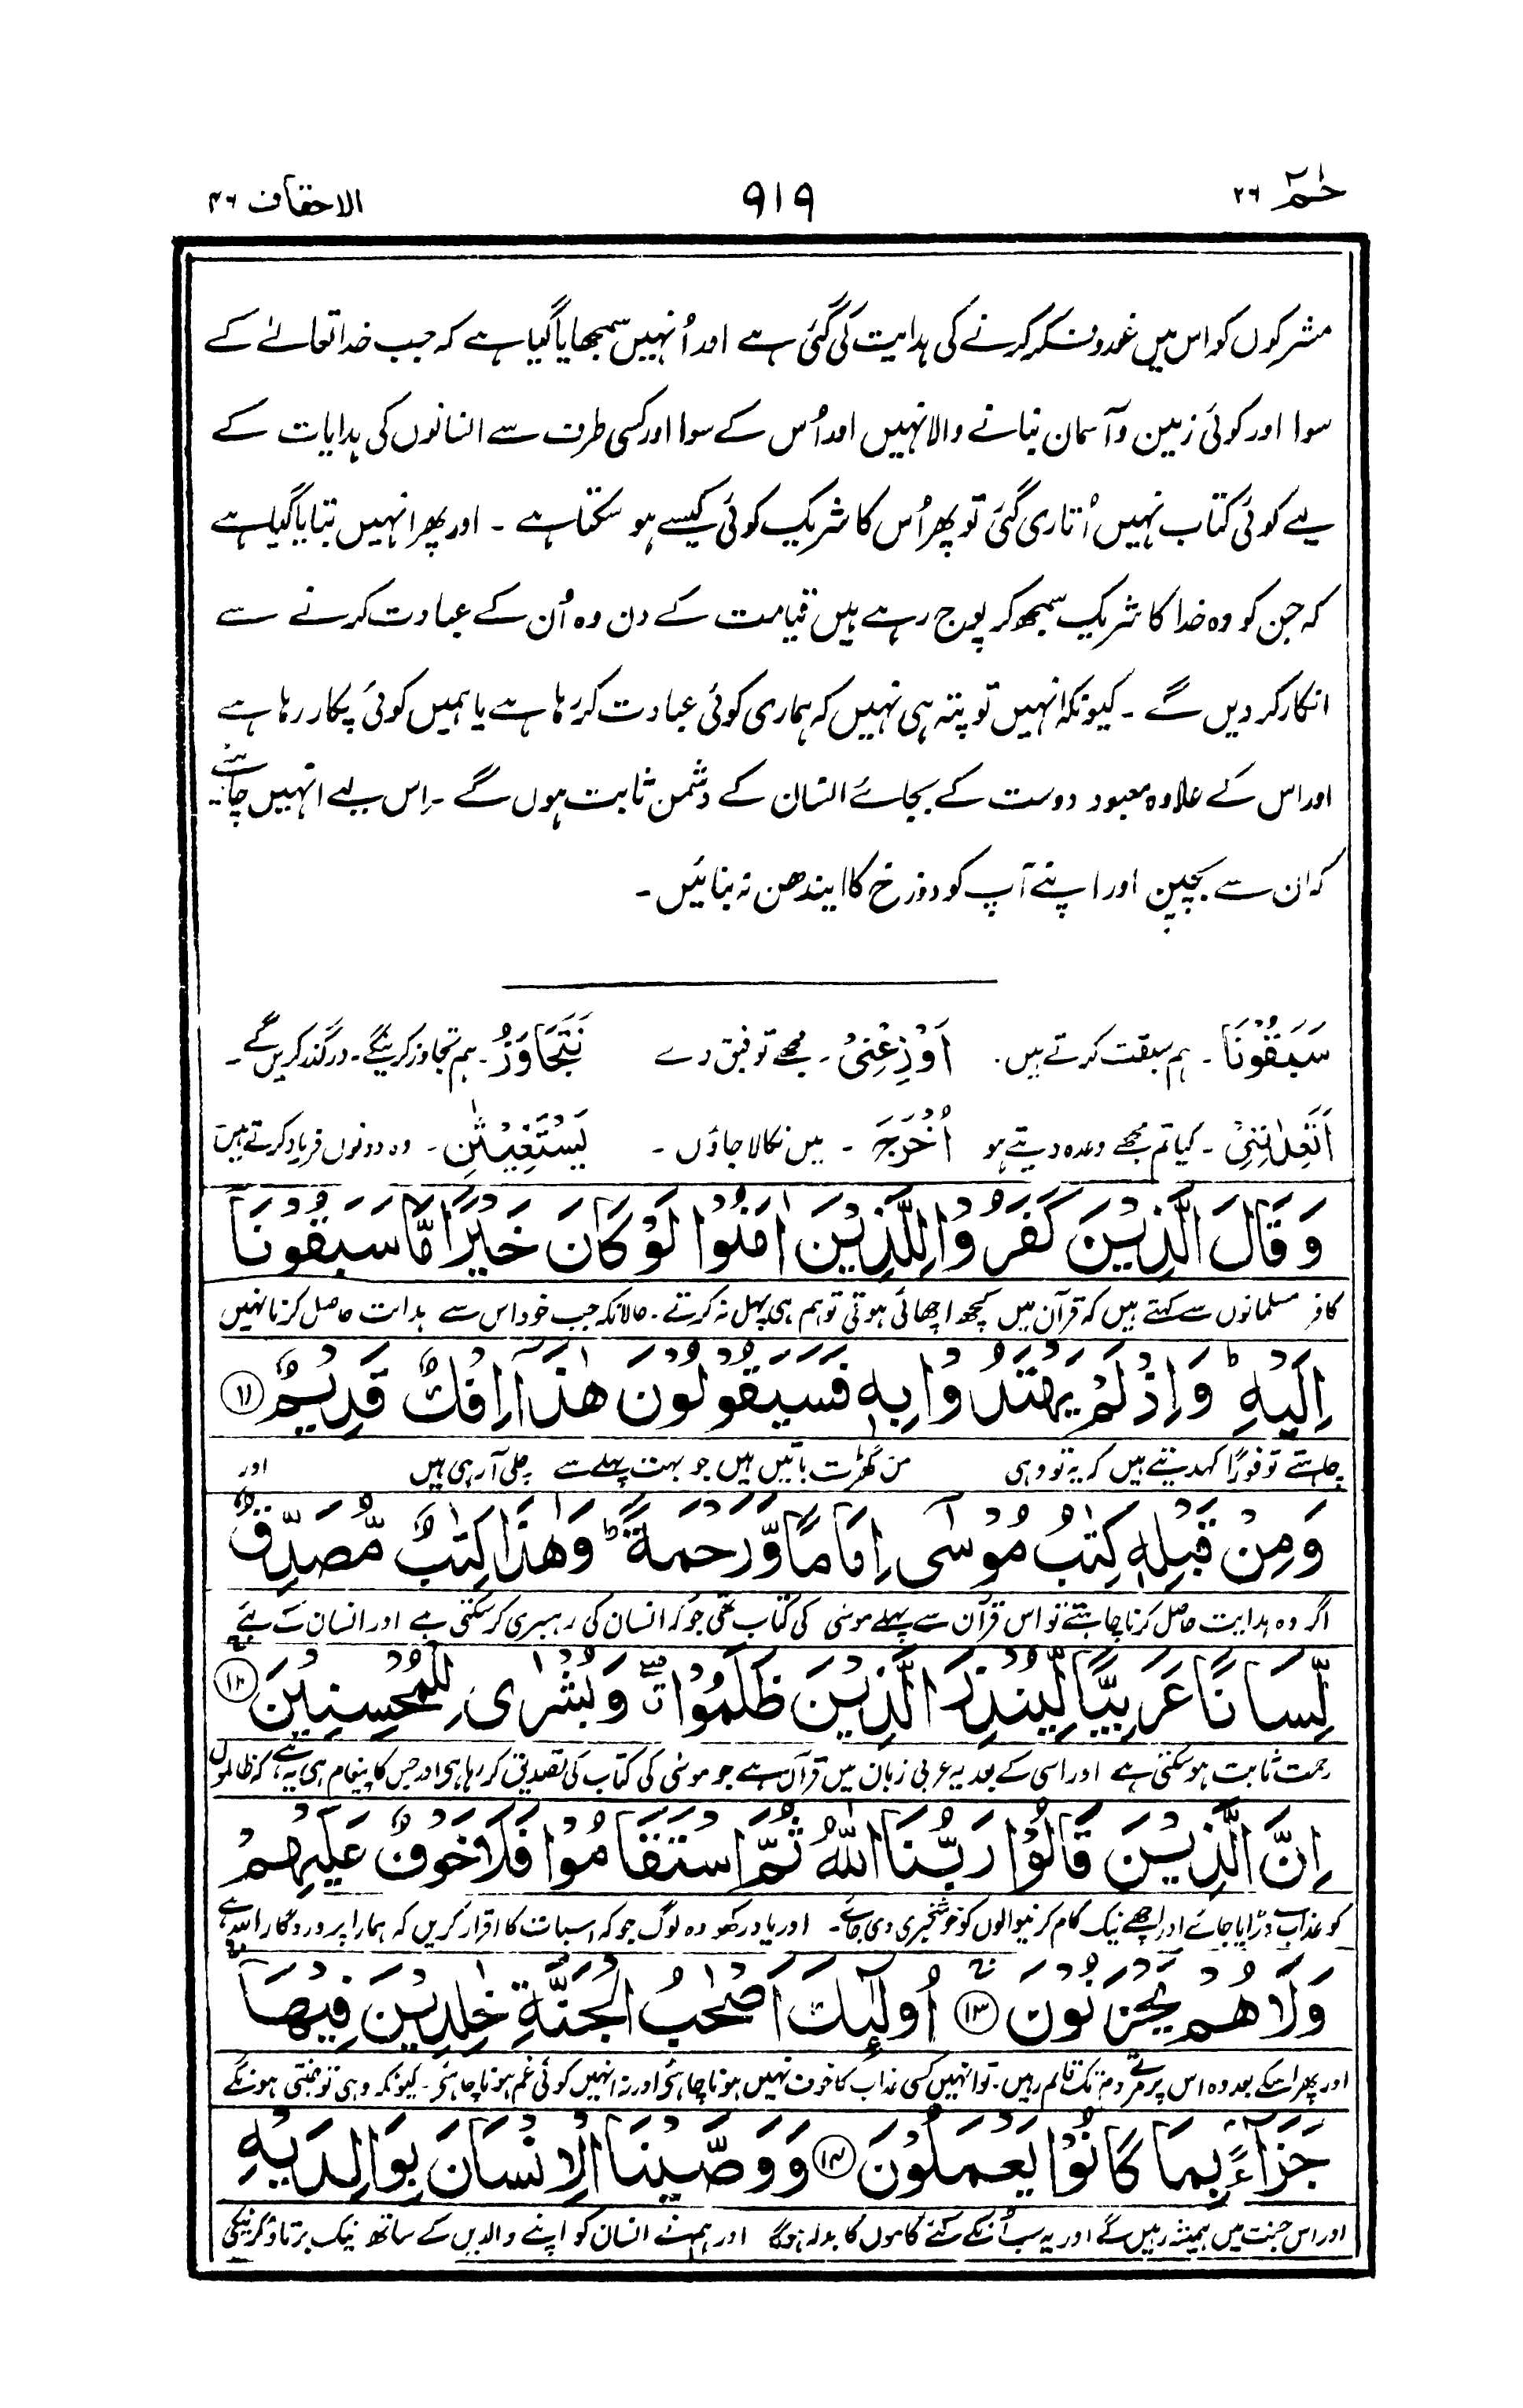 حٰمٓ ۲۶
۹۱۹
الاحقاف ۴۶
مشرکوں کو اس میں غور و فکر کرنے کی ہدایت کی گئی ہے اور اُنہیں سمجھایا گیا ہے کہ جب خدا تعالےٰ کے
سوا اور کوئی زمین و آسمان بنانے والا نہیں اور اُس کے سوا اور کسی طرف سے انسانوں کی ہدایات کے
لیے کوئی کتاب نہیں اُتاری گئی تو پھر اُس کا شریک کوئی کیسے ہو سکتا ہے ۔ اور پھر انہیں بتایا گیا ہے
کہ جن کو وہ خدا کا شریک سمجھ کر پوج رہے ہیں قیامت کے دن وہ اُن کے عبادت کرنے سے
انکار کر دیں گے ۔ کیونکہ انہیں تو پتہ ہی نہیں کہ ہماری کوئی عبادت کر رہا ہے یا ہمیں کوئی پکار رہا ہے
اور اس کے علاوہ معبود دوست کے بجائے انسان کے دشمن ثابت ہوں گے ۔ اس لیے انہیں چاہئے
کہ ان سے بچیں اور اپنے آپ کو دوزخ کا ایندھن نہ بنائیں ۔
سَبَقُوْنَا ۔ ہم سبقت کرتے ہیں ۔ اَوْزِعْنِیْ ۔ مجھے توفیق دے نَتَجَاوَزُ ۔ ہم تجاوز کرینگے ۔ درگذر کریں گے ۔
اَتَعِدٰنِنِیْ ۔ کیا تم مجھے وعدہ دیتے ہو اُخْرَجَ ۔ میں نکالا جاؤں ۔ یَسْتَغِیْثٰنِ ۔ وہ دونوں فریاد کرتے ہیں
وَقَالَ الَّذِیْنَ کَفَرُوْا لِلَّذِیْنَ اٰمَنُوْا لَوْ کَانَ خَیْرًا مَّا سَبَقُوْنَا
کافر مسلمانوں سے کہتے ہیں کہ قرآن میں کچھ اچھائی ہوتی تو ہم ہی پہل نہ کرتے ۔ حالانکہ جب خود اس سے ہدایت حاصل کرنا نہیں
اِلَیْهِ ؕ وَاِذْ لَمْ یَهْتَدُوْا بِهٖ فَسَیَقُوْلُوْنَ هٰذَاۤ اِفْكٌ قَدِیْمٌ ﴿۱۱﴾
چاہتے تو فوراً کہدیتے ہیں کہ یہ تو وہی من گھڑت باتیں ہیں جو بہت پہلے سے چلی آ رہی ہیں اور
وَمِنْ قَبْلِهٖ کِتٰبُ مُوْسٰۤی اِمَامًا وَّرَحْمَةً ؕ وَهٰذَا کِتٰبٌ مُّصَدِّقٌ
اگر وہ ہدایت حاصل کرنا چاہتے تو اس قرآن سے پہلے موسٰی کی کتاب تھی جو کہ انسان کی رہبری کر سکتی ہے اور انسان کے لئے
لِّسَانًا عَرَبِیًّا لِّیُنْذِرَ الَّذِیْنَ ظَلَمُوْا ۖۗ وَبُشْرٰی لِلْمُحْسِنِیْنَ ﴿۱۲﴾
رحمت ثابت ہو سکتی ہے اور اسی کے بعد یہ عربی زبان میں قرآن ہے جو موسٰی کی کتاب کی تصدیق کر رہا ہی اور جس کا پیغام ہی یہ ہے کہ ظالموں
اِنَّ الَّذِیْنَ قَالُوْا رَبُّنَا اللّٰهُ ثُمَّ اسْتَقَامُوْا فَلَا خَوْفٌ عَلَیْهِمْ
کو عذاب سے ڈرایا جائے اور اچھے نیک کام کرنیوالوں کو خوشخبری دی جائے ۔ اور یاد رکھو وہ لوگ جو کہ اسبات کا اقرار کریں کہ ہمارا پروردگار اللہ ہے
وَلَا هُمْ یَحْزَنُوْنَ ﴿۱۳﴾ ۚ اُولٰٓئِكَ اَصْحٰبُ الْجَنَّةِ خٰلِدِیْنَ فِیْهَا
اور پھر اسکے بعد وہ اس پر مرتے دم تک قائم رہیں ۔ تو انہیں کسی عذاب کا خوف نہیں ہونا چاہئے اور نہ انہیں کوئی غم ہونا چاہئے ۔ کیونکہ وہی تو جنتی ہونگے
جَزَآءًۢ بِمَا کَانُوْا یَعْمَلُوْنَ ﴿۱۴﴾ وَوَصَّیْنَا الْاِنْسَانَ بِوَالِدَیْهِ
اور اس جنت میں ہمیشہ رہیں گے اور یہ سب اُنکے کئے کاموں کا بدلہ ہوگا اور ہم نے انسان کو اپنے والدین کے ساتھ نیک برتاؤ کرنیکی